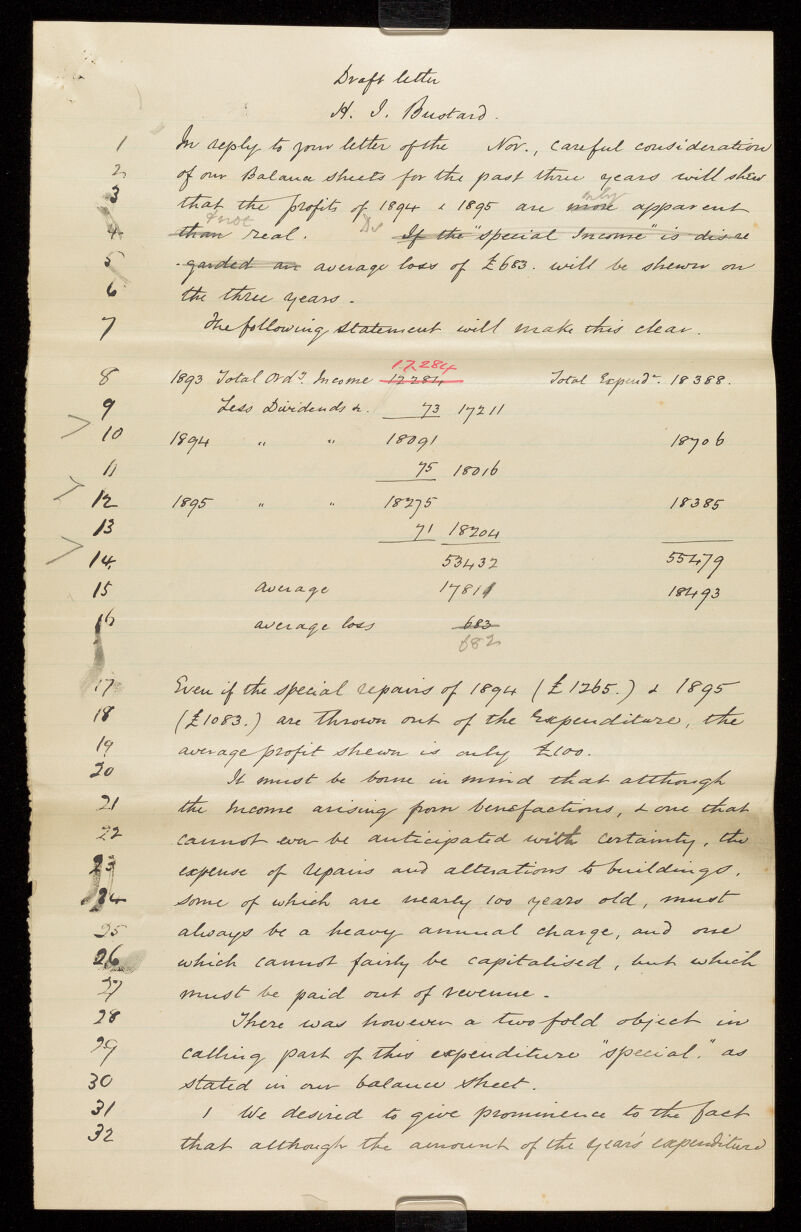 Draft letter
H. I. Bustard.
1 In reply to your letter of the Nov., careful consideration
2 of our Balance sheets for the past three years will shew
only
3 that the profits of 1894 & 1895 are more apparent
& not
4 than real. If the "special Income" is disre
5 -garded an average loss of £683. will be shewn on
6 the three years.
7 The following statement will make this clear.
17284
8 1893 Total Ordy. Income 12284 Total Expendr. 18388.
9 Less Dividends &. 73 17211
10 1894 " " 18091 18706
11 75 18016
12 1895 " " 18275 18385
13 71 18204
14 53432 55479
15 average 17811 18493
16 average loss 683
682
17 Even if the special repairs of 1894 (£1265.) & 1895
18 (£1083.) are thrown out of the Expenditure, the
19 average profit shewn is only £100.
20 It must be borne in mind that although
21 the Income arising from benefactions, & one that
22 cannot ever be anticipated with certainty, the
23 expense of repairs and alterations to buildings,
24 some of which are nearly 100 years old, must
25 always be a heavy annual charge, and one
26 which cannot fairly be capitalised, but which
27 must be paid out of revenue.
28 There was however a two fold object in
29 calling part of this expenditure "special." as
30 stated in our balance sheet.
31 1 We desired to give prominence to the fact
32 that although the amount of the year's expenditure